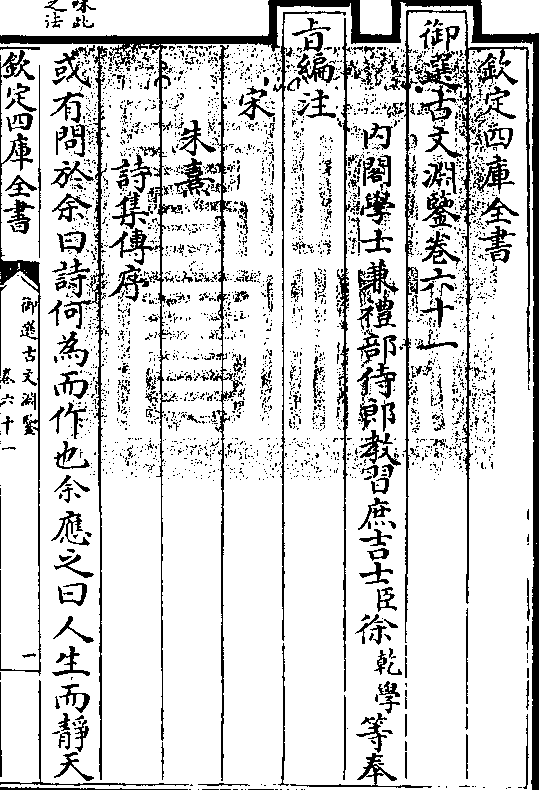 欽定四庫全書
御選古文淵鑒卷六十一
內閣學士兼禮部侍郎教習庶吉士臣徐乾學等奉
旨編注
宋
朱熹
詩集傳序
或有問於余曰詩何為而作也余應之曰人生而靜天
欽定四庫全書
御選古文淵鑒
卷六十一
一